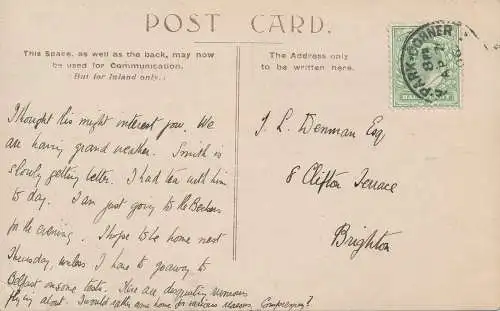 POST CARD.
This Space, as well as the back, may now
be used for Communication.
(But for Inland only.)
The Address only
to be written here.
PARK CORNER
8 PM
AP 2
HALFPENNY
I thought this might interest you. We
are having grand weather. Smith is
slowly getting better. I had tea with him
to day. I am just going to the
for the evening. I hope to be home next
Thursday, unless I have to go away to
Belfast on some tests. Here are disquieting rumours
flying about. I would rather come home for various reasons.
J. L. Denman Esq
8 Clifton Terrace
Brighton